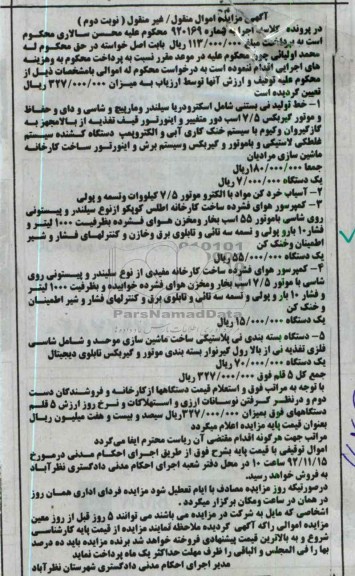 آگهی مزایده اموال منقول / غیر منقول ( نوبت دوم )
در پرونده کلاسه اجرا شماره ۹۲۰۱۶۹ محکوم علیه محسن سالاری محکوم
است به پرداخت مبلغ ۱۱۳/۰۰۰/۰۰۰ ریال بابت اصل خواسته در حق محکوم له
محمد اولیائی چون محکوم علیه در موعد مقرر نسبت به پرداخت محکوم به وهزینه
های اجرایی اقدام ننموده است به درخواست محکوم له اموالی بامشخصات ذیل از
محکوم علیه توقیف و ارزش آنها توسط ارزیاب به میزان ۳۲۷/۰۰۰/۰۰۰ ریال
تعیین گردیده است
۱- خط تولید نی بستنی شامل اسکترودریا سیلندر ومارپیچ و شاسی و دای و حفاظ
و موتور گیربکس ۷/۵ اسب دور متغییر و اینورتور قیف تغذیه از بالامجهز به
گازگیروان وکیوم با سیستم خنک کاری آبی و الکتروپمپ دستگاه کشنده سیستم
غلطکی لاستیکی و باموتور و گیربکس وسیستم برش و اینورتور ساخت کارخانه
ماشین سازی مرادیان
جمعا ۱۸۰/۰۰۰/۰۰۰ ریال
یک دستگاه ۷/۰۰۰/۰۰۰ ریال
۲- آسیاب خرد کن مواد با الکترو موتور ۷/۵ کیلووات وتسمه و پولی
۳- کمپرسور هوای فشرده ساخت کارخانه اطلس کوپکو ازنوع سیلندر و پیستونی
روی شاسی باموتور ۵۵ اسب بخار ومخزن هوای فشرده بظرفیت ۱۰۰۰ لیتر و
فشار ۱۰ بارو پولی و تسمه سه تائی و تابلوی برق وخازن و کنترلهای فشار و شیر
اطمینان وخنک کن
یک دستگاه ۵۵/۰۰۰/۰۰۰ ریال
۴- کمپرسور هوای فشرده ساخت کارخانه مفیدی از نوع سلیندر و پیستونی روی
شاسی با موتور ۷/۵ اسب بخار ومخزن هوای فشرده خوابیده و بظرفیت ۱۰۰۰ لیتر
و فشار ۱۰ بار و پولی و تسمه سه تائی و تابلوی برق و کنترلهای فشار و شیر اطمینان
و خنک کن
یک دستگاه ۱۵/۰۰۰/۰۰۰ ریال
۵- دستگاه بسته بندی نی پلاستیکی ساخت ماشین سازی موحد و شمامل شاسی
فلزی تغذیه نی از بالا رول گیرنوار بسته بندی موتور و گیربکس تابلوی دیجیتال
یک دستگاه ۷۰/۰۰۰/۰۰۰ ریال
جمع کل ۵ قلم فوق ۳۲۷/۰۰۰/۰۰۰ ریال
با توجه به مراتب فوق و استعلام قیمت دستگاهها ازکارخانه و فروشندگان دست
دوم و درنظر گرفتن نوسانات ارزی و استهلاکات و نرخ روز ارزش ۵ قلم
دستگاههای فوق بمیزان ۳۲۷/۰۰۰/۰۰۰ ریال سیصد و بیست و هفت میلیون ریال
بعنوان قیمت پایه مزایده اعلام میگردد
مراتب جهت هرگونه اقدام مقتضی آن ریاست محترم ایفا می‌گردد
اموال توقیفی با قیمت پایه بشرح فوق از طریق اجرای احکام مدنی درمورخ
۹۲/۱۱/۱۵ ساعت ۱۰ در محل دفتر شعبه اجرای احکام مدنی دادگستری نظرآباد
به فروش خواهد رسید.
درصورتیکه روز مزایده مصادف با ایام تعطیل شود مزایده فردای اداری همان روز
در همان در ساعت ومکان برگزار میگردد .
اشخاصی که مایل به شرکت در مزایده می باشند می توانند ۵ روز قبل از روز معین
مزایده اموالی راکه آگهی گردیده ملاحظه نمایند مزایده از قیمت پایه کارشناسی
شروع و به بالاترین قیمت پیشنهادی فروخته خواهد شد برنده مزایده باید ده درصد
بها را فی المجلس و الباقی را ظرف مهلت حداکثر یک ماه پرداخت نماید
مدیر اجرای احکام مدنی دادگستری شهرستان نظرآباد
ParsNamadData